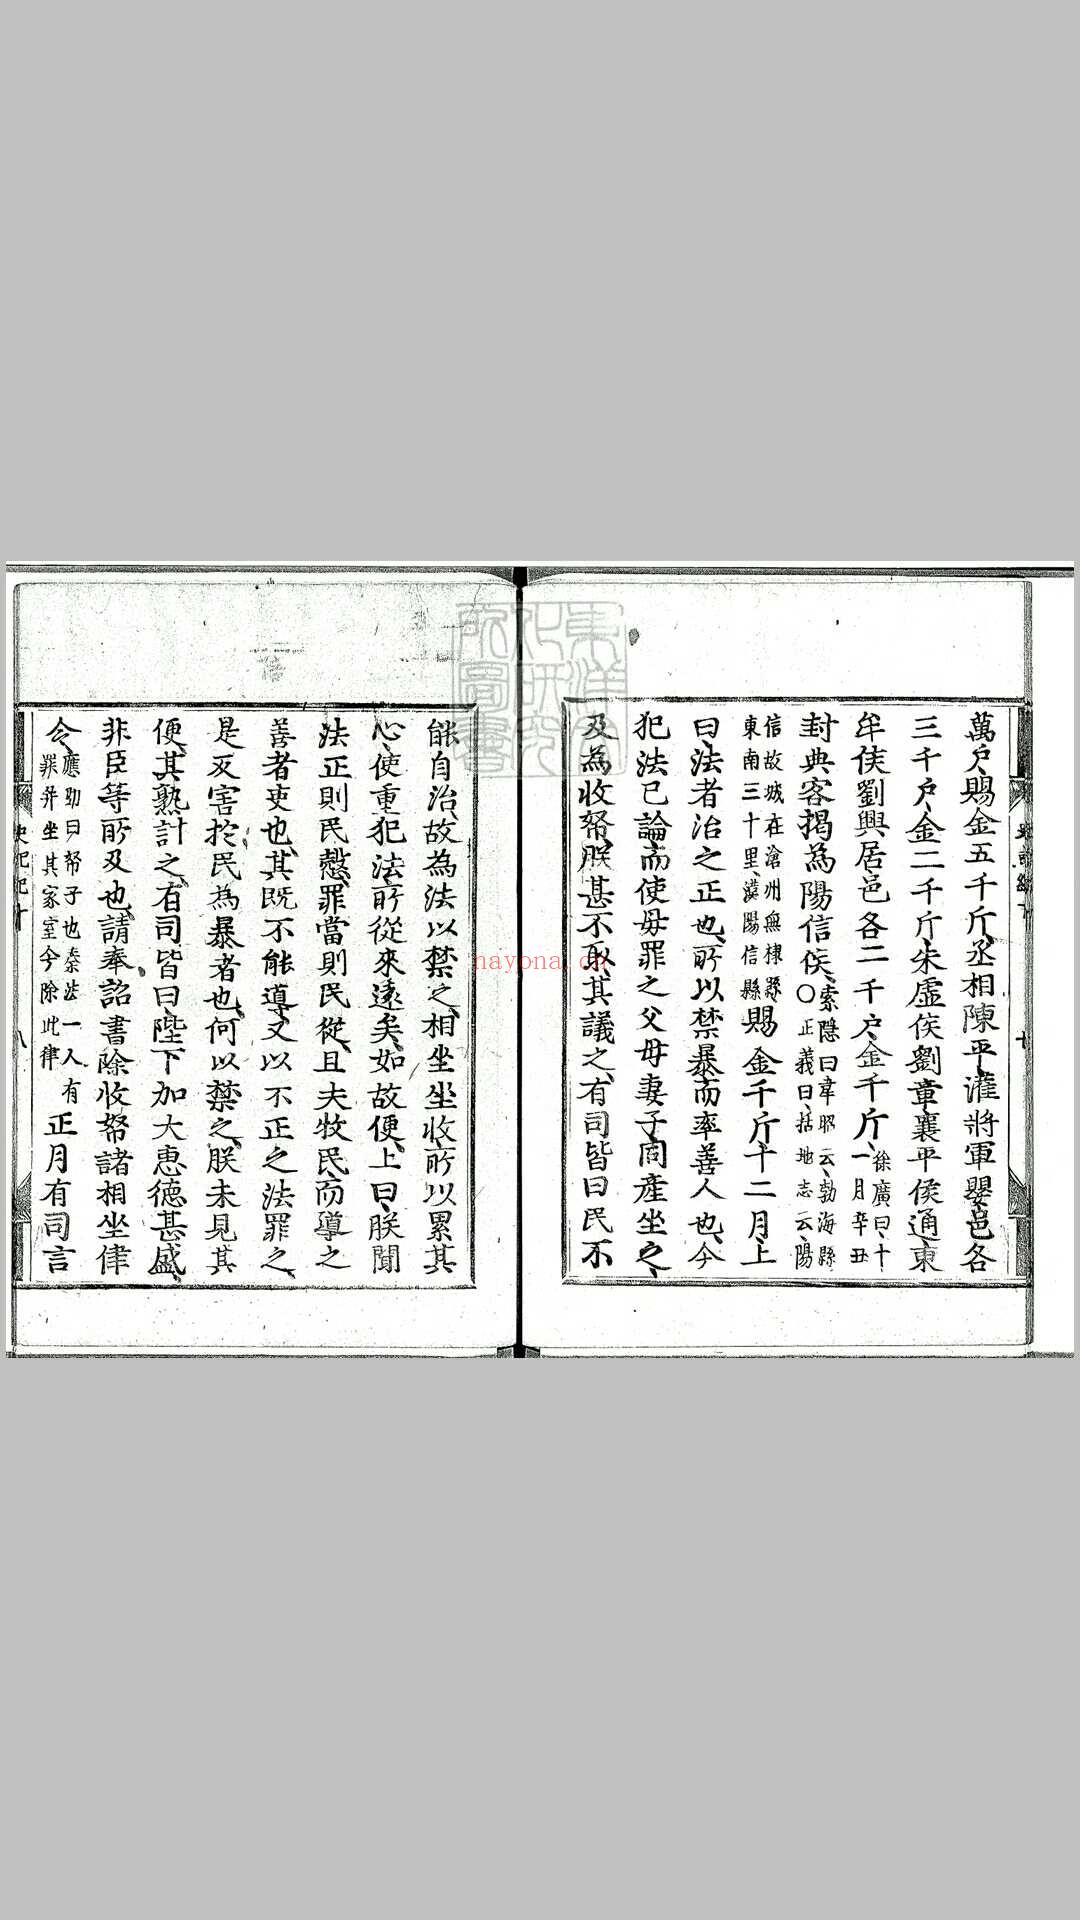 萬戶、賜金五千斤、丞相陳平、灌將軍嬰邑各
三千戶、金二千斤朱虛侯劉章、襄平侯通、東
牟侯劉興居邑各二千戶、金千斤、徐廣曰、十一月辛丑
封典客揭為陽信侯、索隱曰韋昭云、勃海縣〇正義曰、括地志云、陽
信故城在滄州無棣縣東南三十里、漢陽信縣賜金千斤、十二月、上
曰、法者治之正也、所以禁暴而率善人也、今
犯法已論、而使毋罪之父母妻子同產坐之、
及為收帑、朕甚不取、其議之、有司皆曰民不
能自治、故為法以禁之、相坐坐收、所以累其
心、使重犯法、所從來遠矣、如故便、上曰、朕聞
法正則民慤、罪當則民從、且夫牧民、而導之
善者吏也、其既不能導、又以不正之法罪之、
是反害於民為暴者也、何以禁之、朕未見其
便、其熟計之、有司皆曰、陛下加大惠德甚盛、
非臣等所及也、請奉、詔書除收帑諸相坐律
令、應劭曰帑子也秦法一人有罪并坐其家室今除此律正月有司言
史記紀十
八
東洋文化研究所圖書
nayona.cn